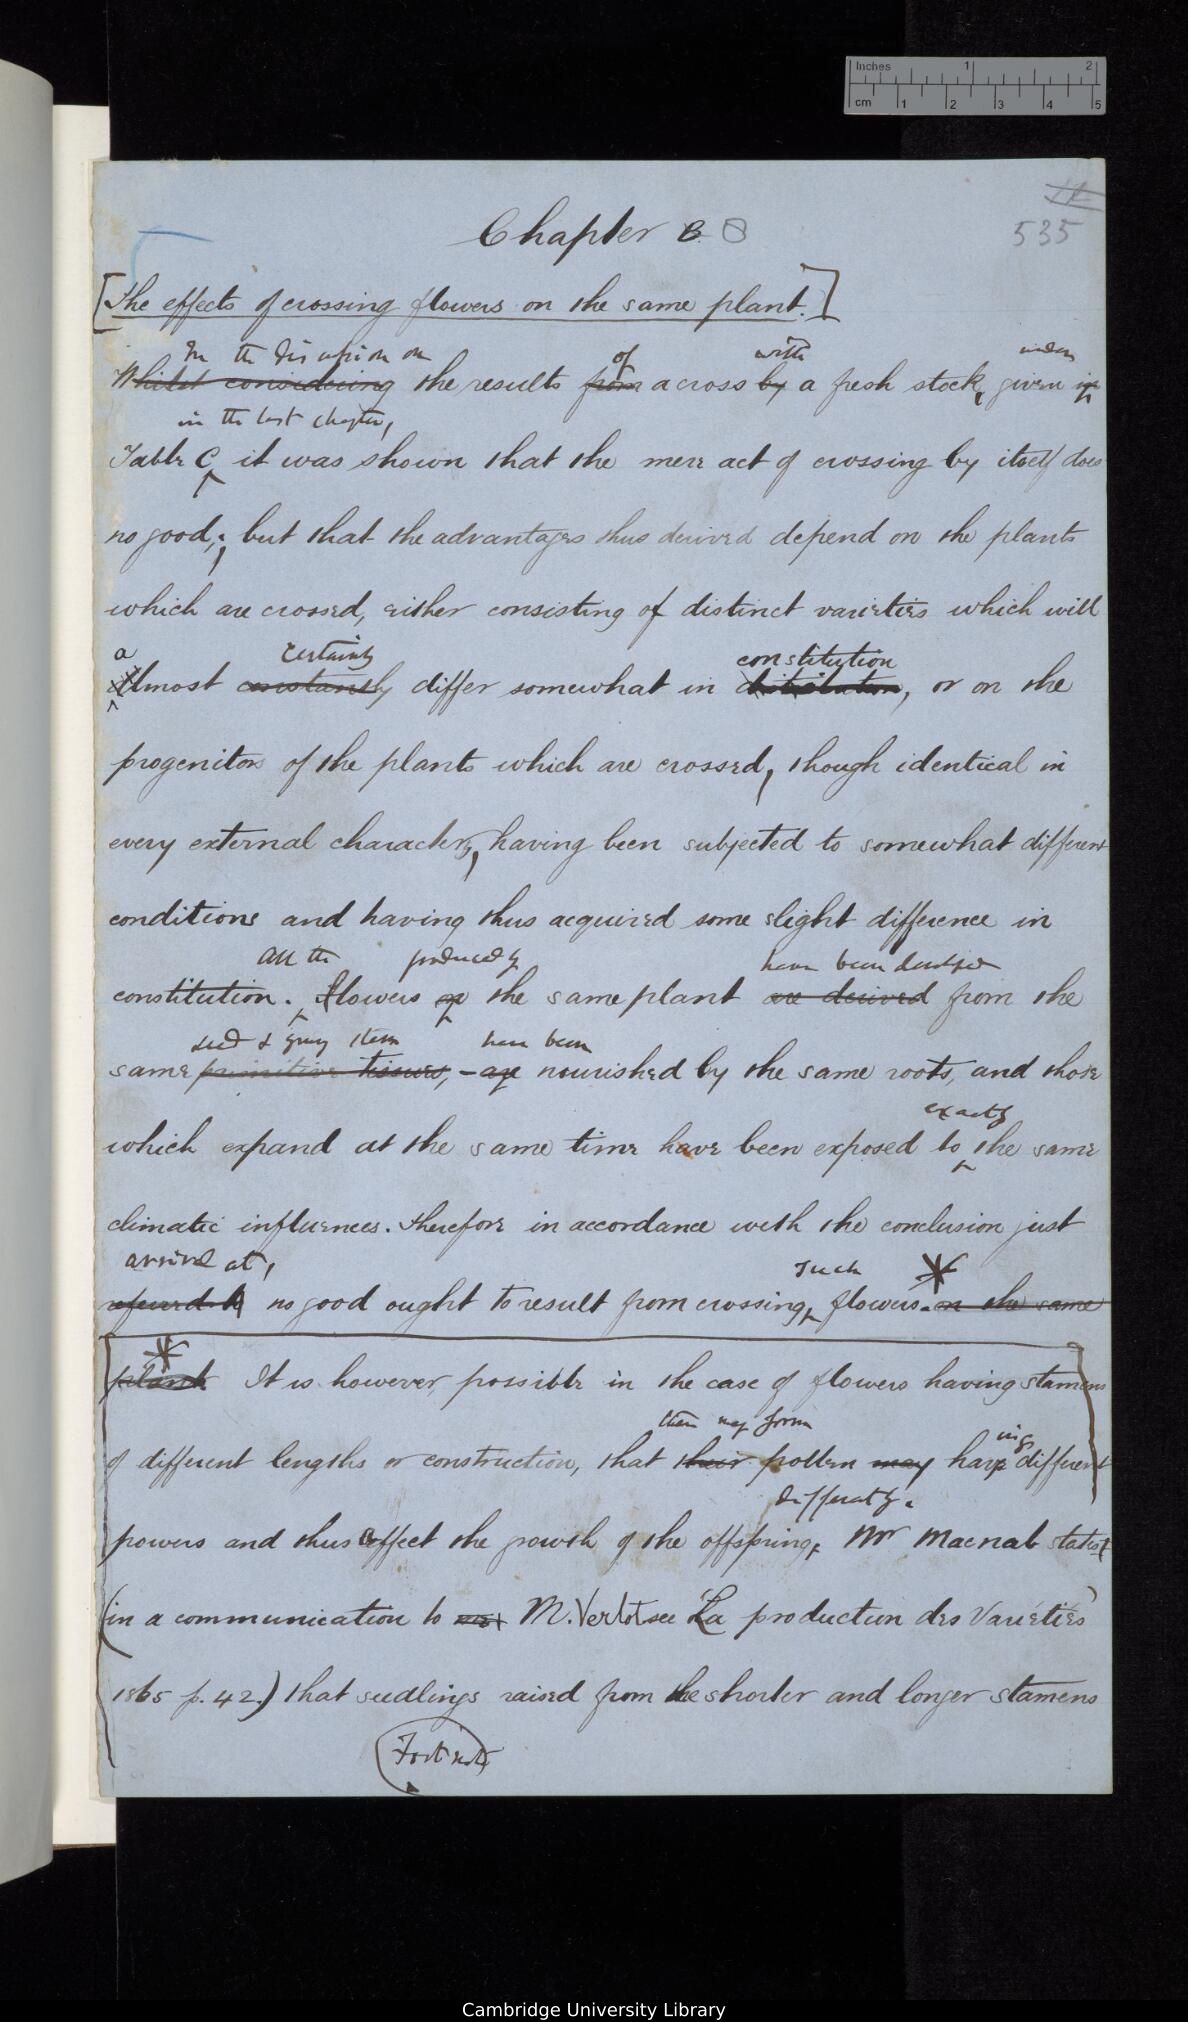 Inches 1 2
cm 1 2 3 4 5
535
Chapter B. 8
[The effects of crossing flowers on the same plant.]
In the discussion on of with under
Whilst considering the results from a cross by a fresh stock, given in
in the last chapter,
Table C, it was shown that the mere act of crossing by itself does
no good; but that the advantages thus derived depend on the plants
which are crossed, either consisting of distinct varieties which will
a certainly constitution
Almost constantly differ somewhat in distribution, or on the
progenitors of the plants which are crossed, though identical in
every external character, having been subjected to somewhat different
conditions and having thus acquired some slight difference in
All the produced by have been developed
constitution. flowers on the same plant are derived from the
seed & young stem have been
same primitive tissues, - are nourished by the same roots, and those
exactly
which expand at the same time have been exposed to the same
climatic influences. Therefore in accordance with the conclusion just
arrived at, such *
referred to no good ought to result from crossing flowers. on the same
*
plant. It is however, possible in the case of flowers having stamens
there may form ing
of different lengths or construction, that their pollen may have different
differently.
powers and thus affect the growth of the offspring, Mr Macnab states
(in a communication to me) M. Verlot see 'La production des Variétiés'
1865 p. 42.) that seedlings raised from the shorter and longer stamens
Foot note
Cambridge University Library